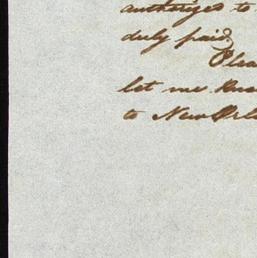 authorized to
duly paid.
Plea
let me know
to New Orle